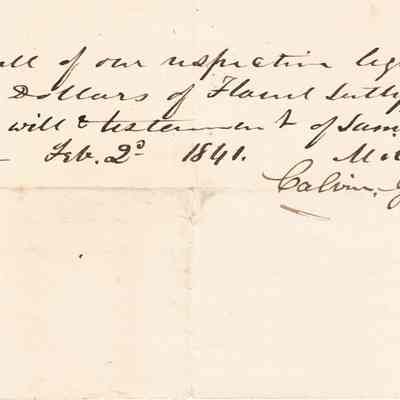 all of our respective leg
Dollars of Flavil Suttl
will & testement of Sam
Feb. 2d 1841.
Calvin